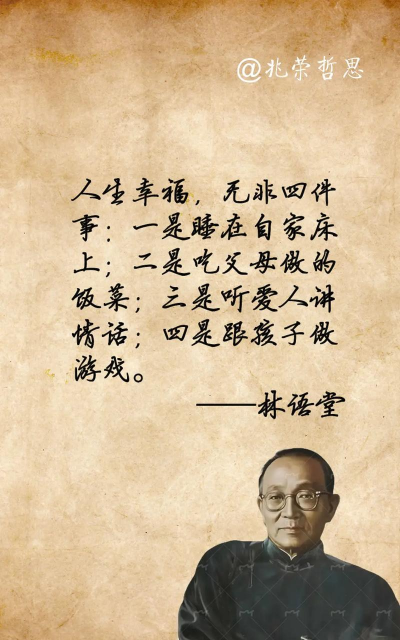 @兆荣哲思
人生幸福，无非四件
事：一是睡在自家床
上；二是吃父母做的
饭菜；三是听爱人讲
情话；四是跟孩子做
游戏。
——林语堂